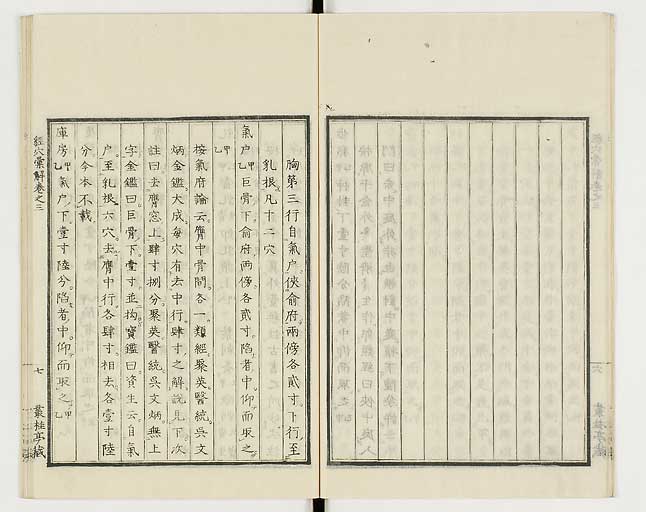 胸第三行自氣户俠俞府兩傍各貳寸下行至
乳根凡十二穴
氣户甲乙巨骨下俞府兩傍各貳寸陷者中仰而取之
按氣府論云膺中骨間各一類經聚英醫統吳文
炳金鑑大成每穴有去中行肆寸之解說見下次
註曰去膺窓上肆寸捌分聚英醫統吳文炳無上
字金鑑曰巨骨下壹寸並拘寳鑑曰資生云自氣
户至乳根六穴去膺中行各肆寸相去各壹寸陸
分今本不載
庫房甲乙氣户下壹寸陸分陷者中仰而取之甲乙
經穴彙解卷之三
七
叢桂亭藏